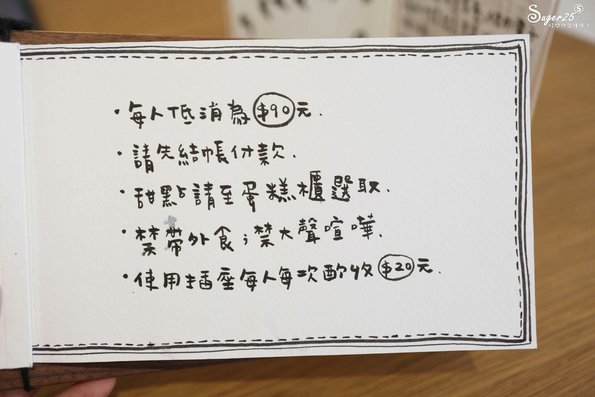 Suger25
・每人低消為$90元.
・請先結帳付款.
・甜點請至蛋糕櫃選取.
・禁帶外食；禁大聲喧嘩.
・使用插座每人每次酌收$20元.